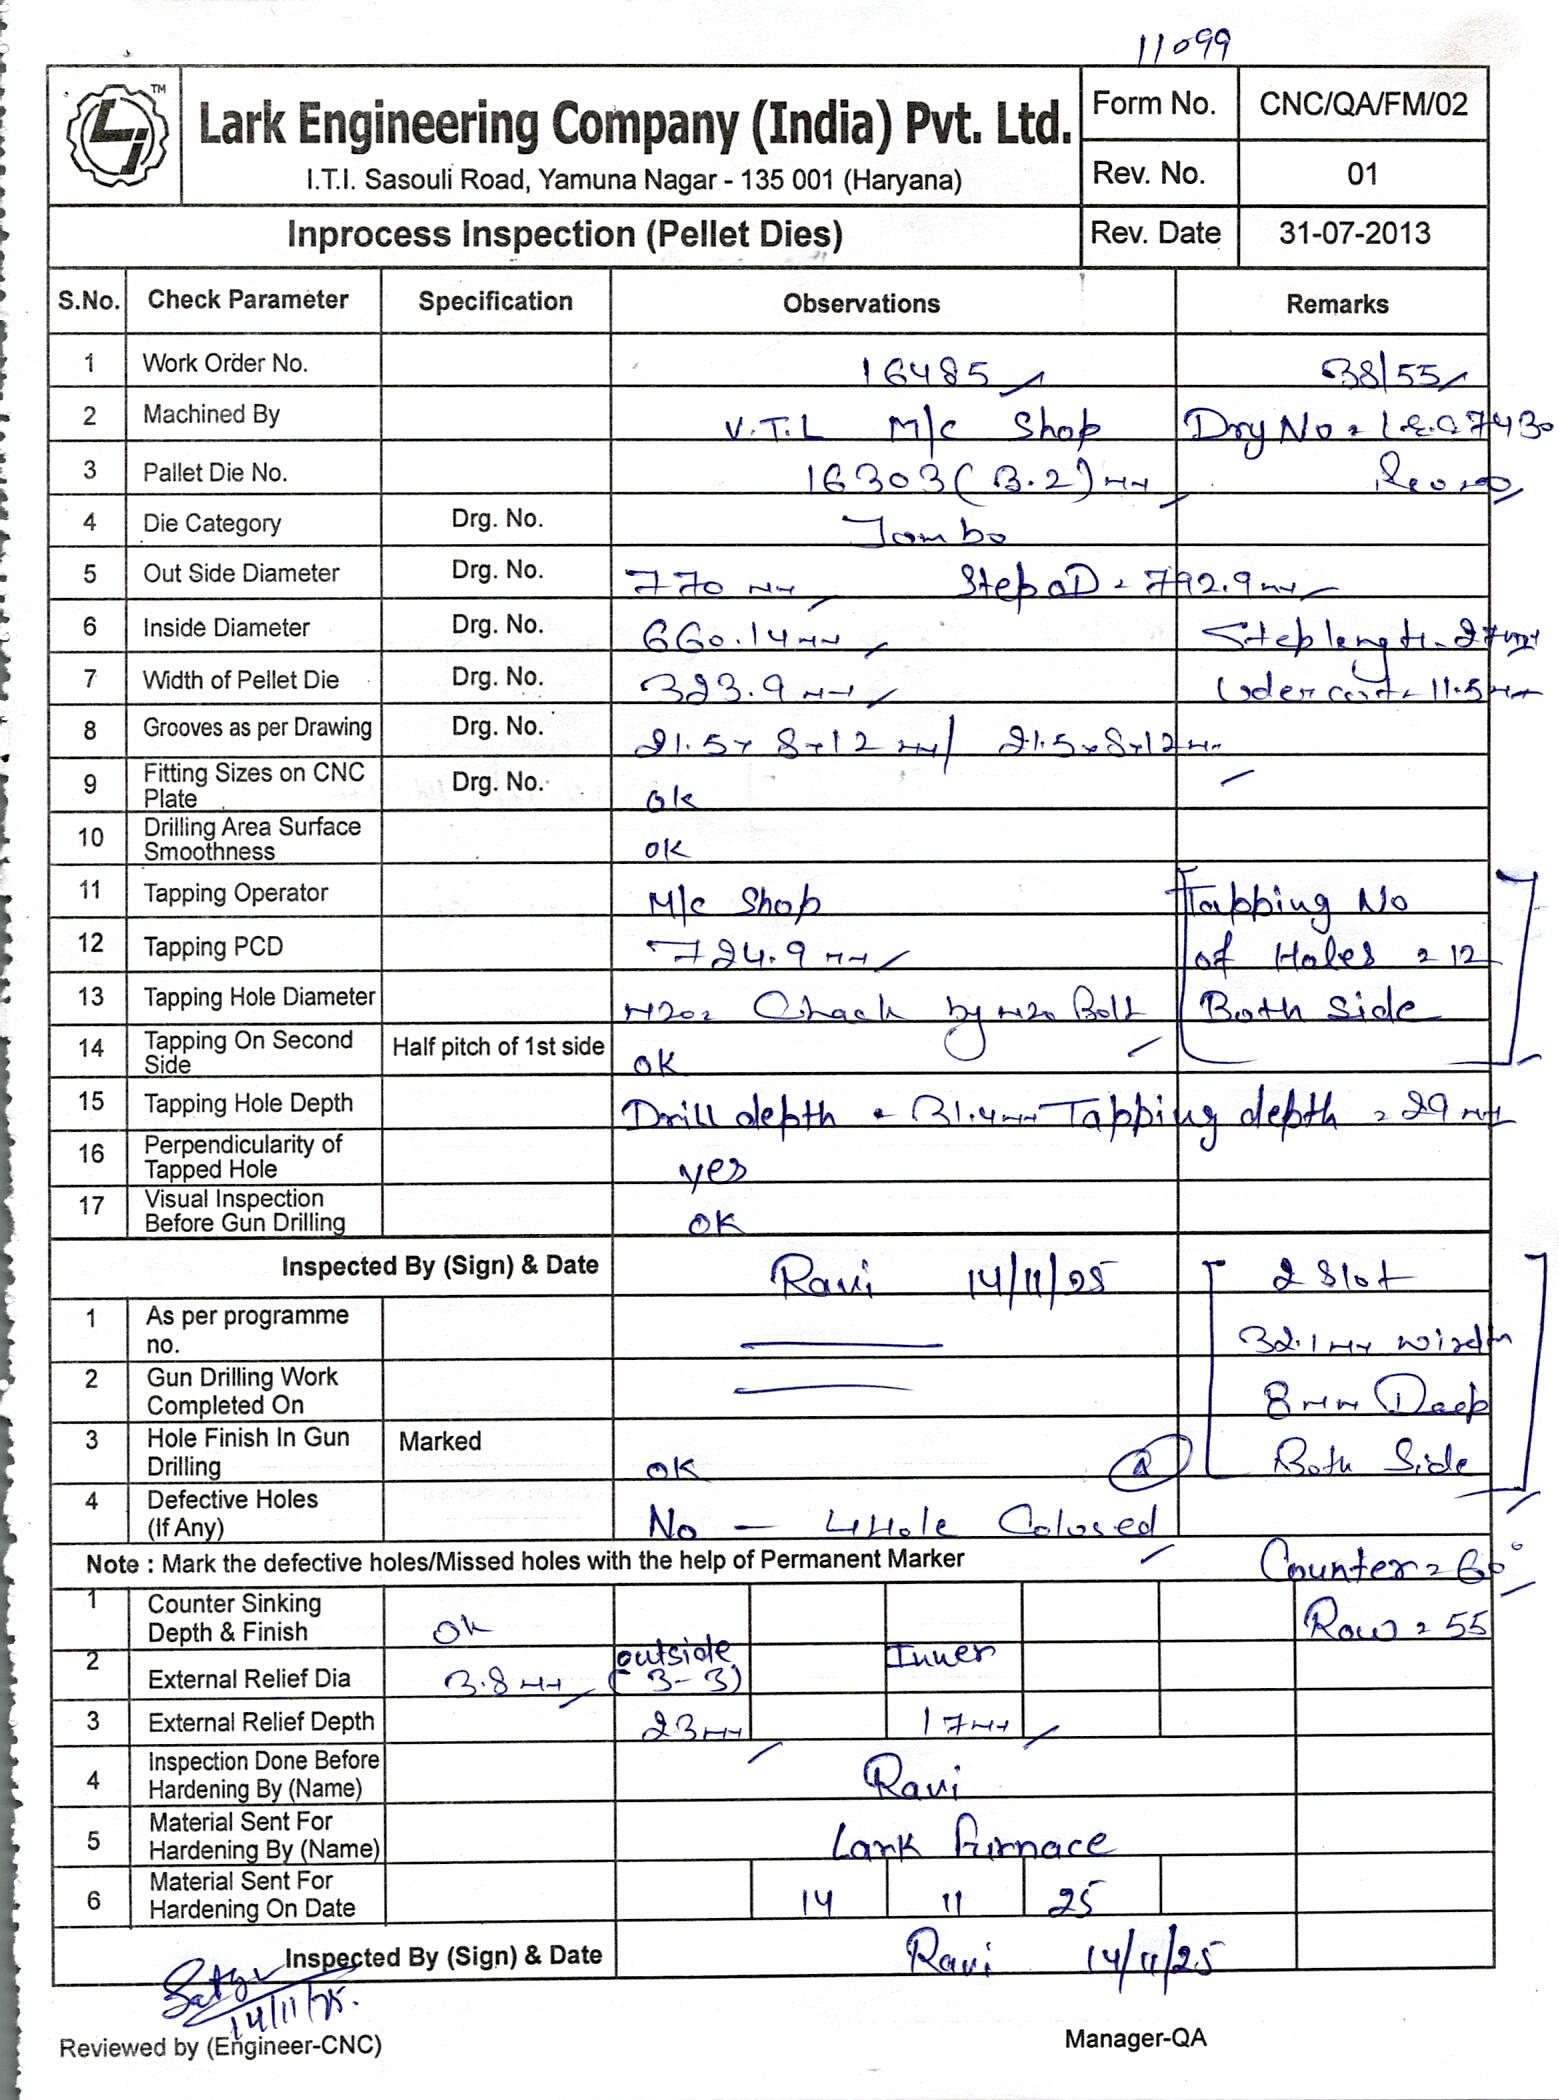 11099
TM
Lark Engineering Company (India) Pvt. Ltd.
I.T.I. Sasouli Road, Yamuna Nagar - 135 001 (Haryana)
Form No. CNC/QA/FM/02
Rev. No. 01
Inprocess Inspection (Pellet Dies)
Rev. Date 31-07-2013
S.No. Check Parameter Specification Observations Remarks
1 Work Order No. 16485 38/55
2 Machined By V.T.L M/c Shop Drg No = L.E.C 7430
3 Pallet Die No. 16303 (3.2) mm
4 Die Category Drg. No. Jambo
5 Out Side Diameter Drg. No. 770 mm Step OD = 792.9 mm
6 Inside Diameter Drg. No. 660.14 mm Step length = 27 mm
7 Width of Pellet Die Drg. No. 323.9 mm Uder cut = 11.5 mm
8 Grooves as per Drawing Drg. No. 21.5 x 8 x 12 mm / 21.5 x 8 x 12 mm
9 Fitting Sizes on CNC Plate Drg. No. ok
10 Drilling Area Surface Smoothness OK
11 Tapping Operator M/c Shop Tapping No
12 Tapping PCD 724.9 mm of Holes = 12
13 Tapping Hole Diameter M20 = Chack by M20 Bolt Both Side
14 Tapping On Second Side Half pitch of 1st side OK
15 Tapping Hole Depth Drill depth = 31.4 mm Tapping depth = 29 mm
16 Perpendicularity of Tapped Hole yes
17 Visual Inspection Before Gun Drilling OK
Inspected By (Sign) & Date Ravi 14/11/25 2 Slot
1 As per programme no. 32.1 mm widdth
2 Gun Drilling Work Completed On 8 mm Deep
3 Hole Finish In Gun Drilling Marked OK Both Side
4 Defective Holes (If Any) No - 4 Hole Colosed
Note : Mark the defective holes/Missed holes with the help of Permanent Marker Counter = 60°
1 Counter Sinking Depth & Finish Ok Row = 55
2 External Relief Dia 3.8 mm outside (3-3) Inner
3 External Relief Depth 23 mm 17 mm
4 Inspection Done Before Hardening By (Name) Ravi
5 Material Sent For Hardening By (Name) Lark Furnace
6 Material Sent For Hardening On Date 14 11 25
Inspected By (Sign) & Date Ravi 14/11/25
14/11/25.
Reviewed by (Engineer-CNC) Manager-QA